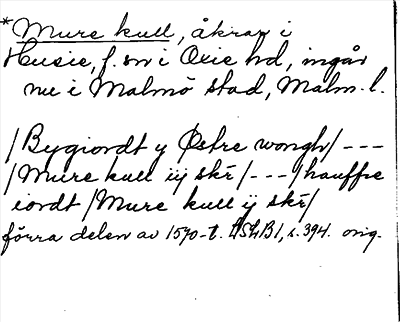 *Mure kull, åkrar i
Husie, f. sn i Oxie hd, ingår
nu i Malmö stad, Malm. l.
/Bygiordt y Østre wongh/ ---
/Mure kull iij skr̄/ --- /hauffre
iordt /Mure kull ij skr̄/
förra delen av 1570-t. LSLB1, s. 394. orig.